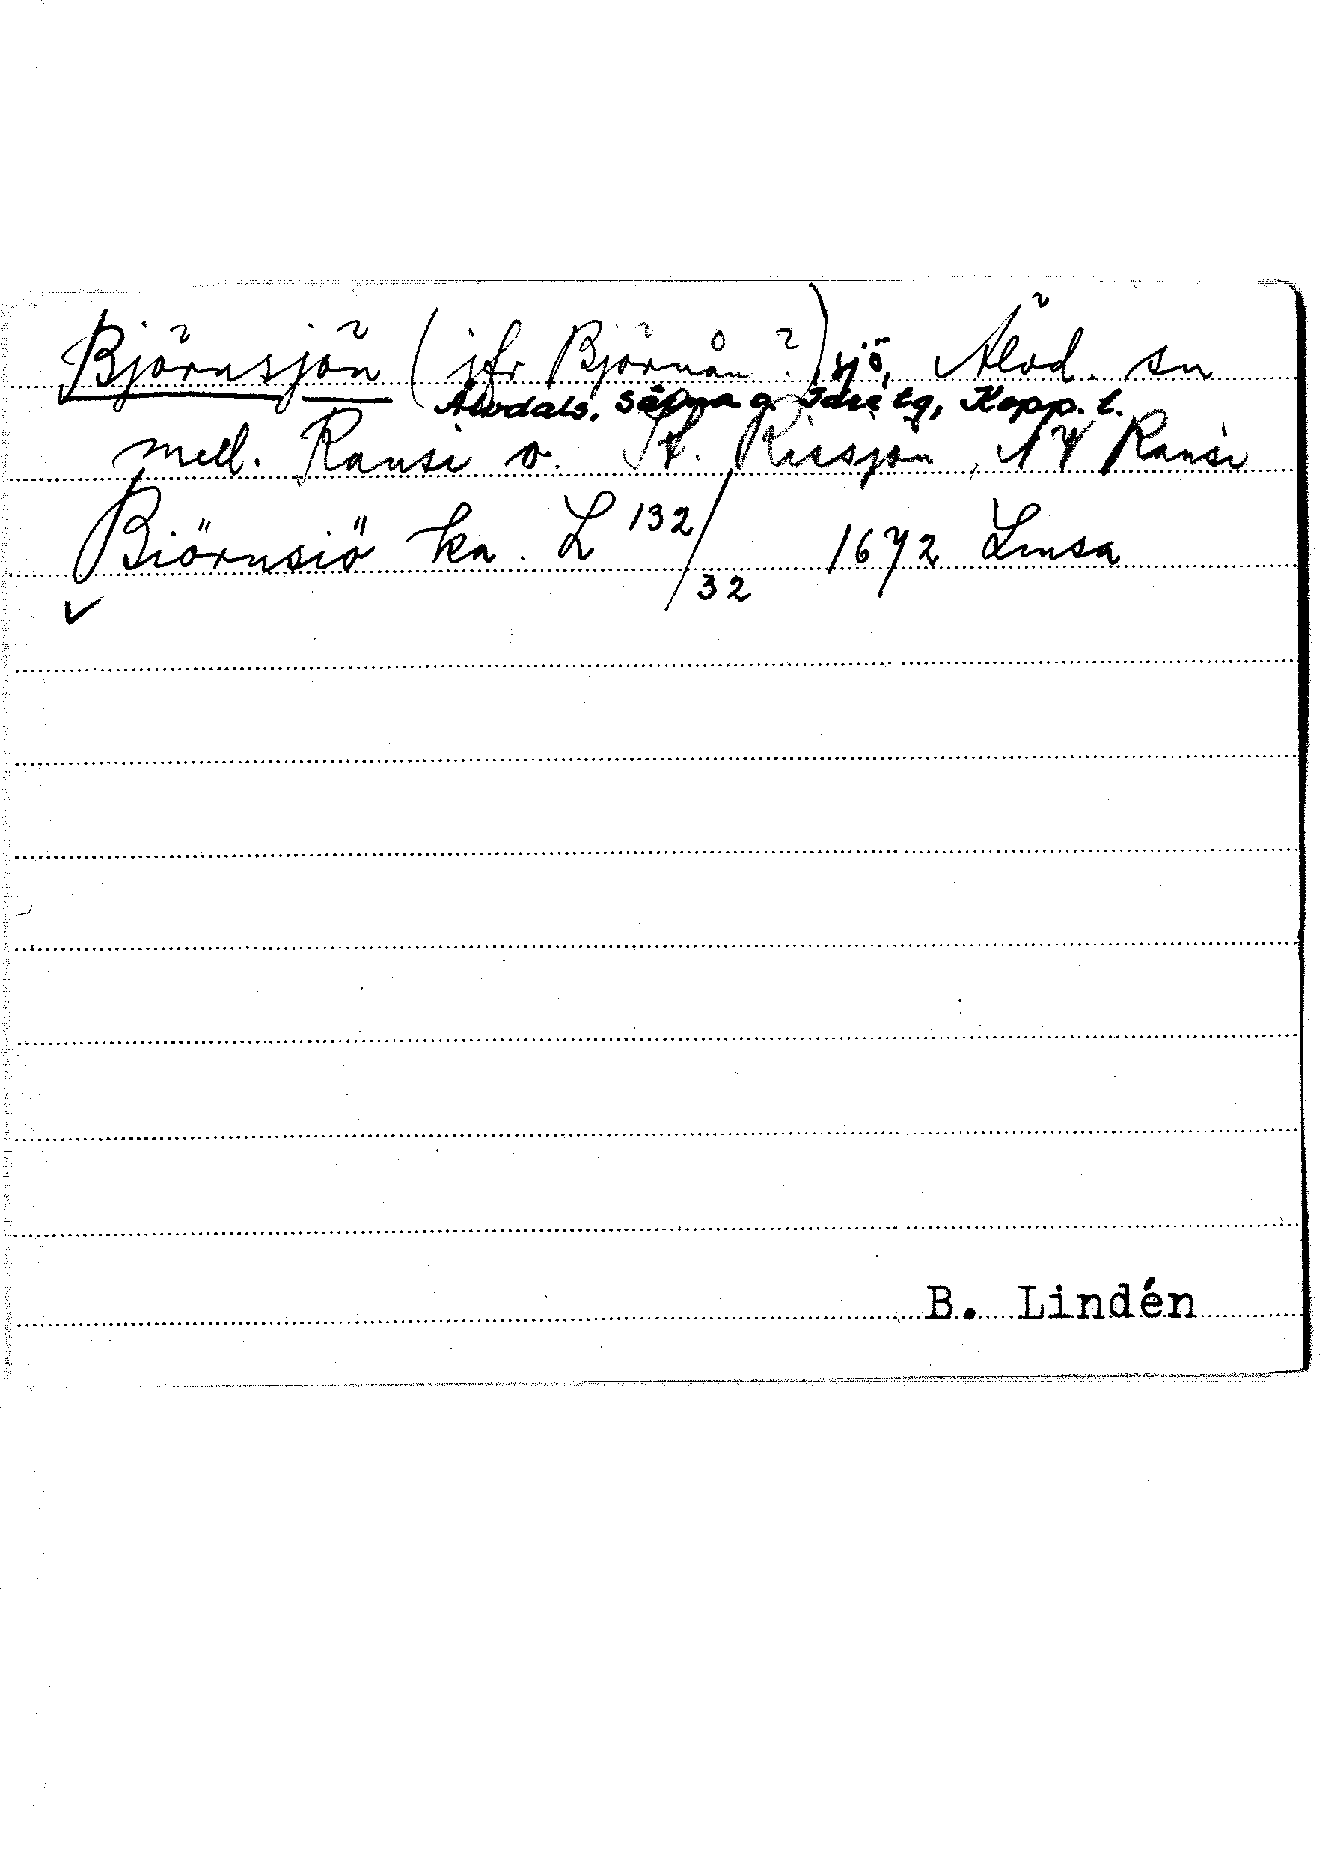 Björnsjön (jfr Björnån?) sjö, Älvd. sn
Älvdals, Särna o. Idre tg, Kopp. l.
mell. Ransi o. St. Rissjön, NV Ransi
Biörnsiö ka. L 132/32 1672
B. Lindén